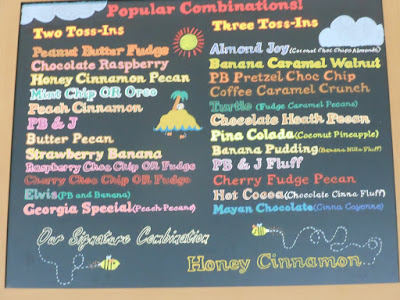 Popular Combinations!
Two Toss-Ins
Peanut Butter Fudge
Chocolate Raspberry
Honey Cinnamon Pecan
Mint Chip OR Oreo
Peach Cinnamon
PB & J
Butter Pecan
Strawberry Banana
Raspberry Choc Chip OR Fudge
Cherry Choc Chip OR Fudge
Elvis (PB and Banana)
Georgia Special (Peach Pecans)
Three Toss-Ins
Almond Joy (Coconut Choc Chips Almonds)
Banana Caramel Walnut
PB Pretzel Choc Chip
Coffee Caramel Crunch
Turtle (Fudge Caramel Pecans)
Chocolate Heath Pecan
Pina Colada (Coconut Pineapple)
Banana Pudding (Banana Nilla Fluff)
PB & J Fluff
Cherry Fudge Pecan
Hot Cocoa (Chocolate Cinna Fluff)
Mayan Chocolate (Cinna Cayenne)
Our Signature Combination
Honey Cinnamon